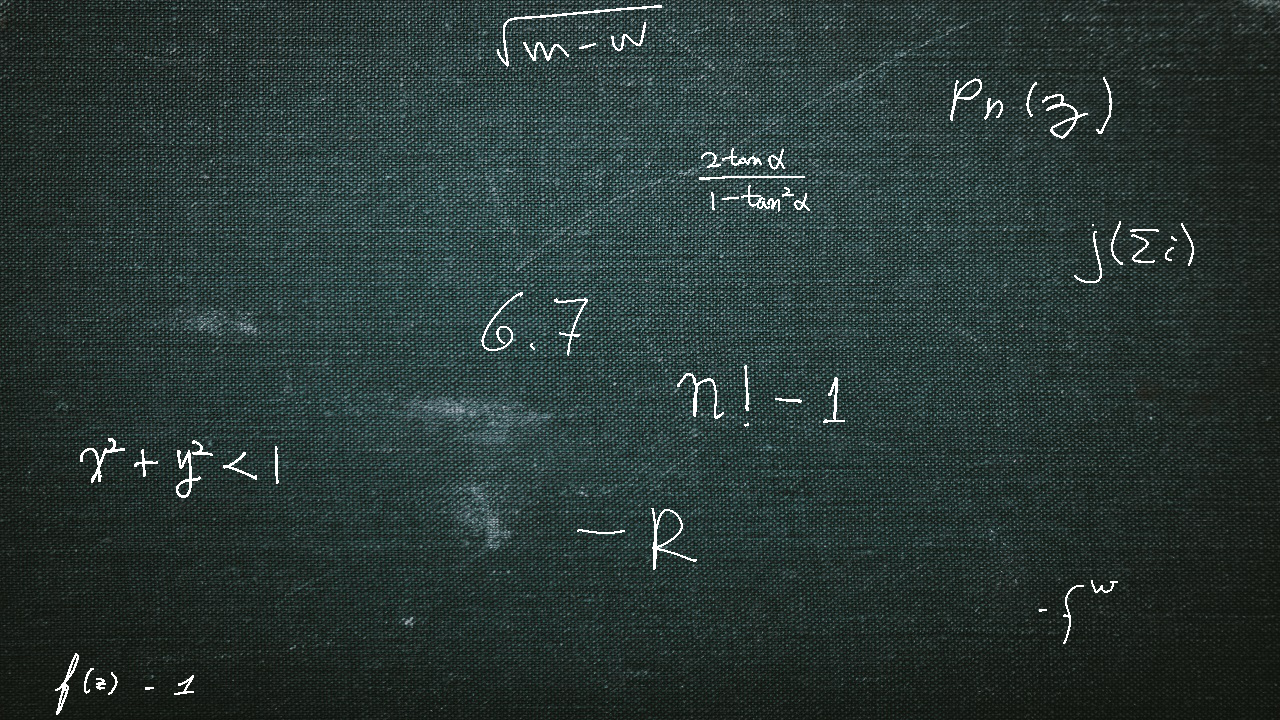 \sqrt{m-w}
P_n(z)
\frac{2\tan\alpha}{1-\tan^2\alpha}
j(\sum i)
6.7
n!-1
x^2+y^2<1
-R
-\int^w
f(z)-1